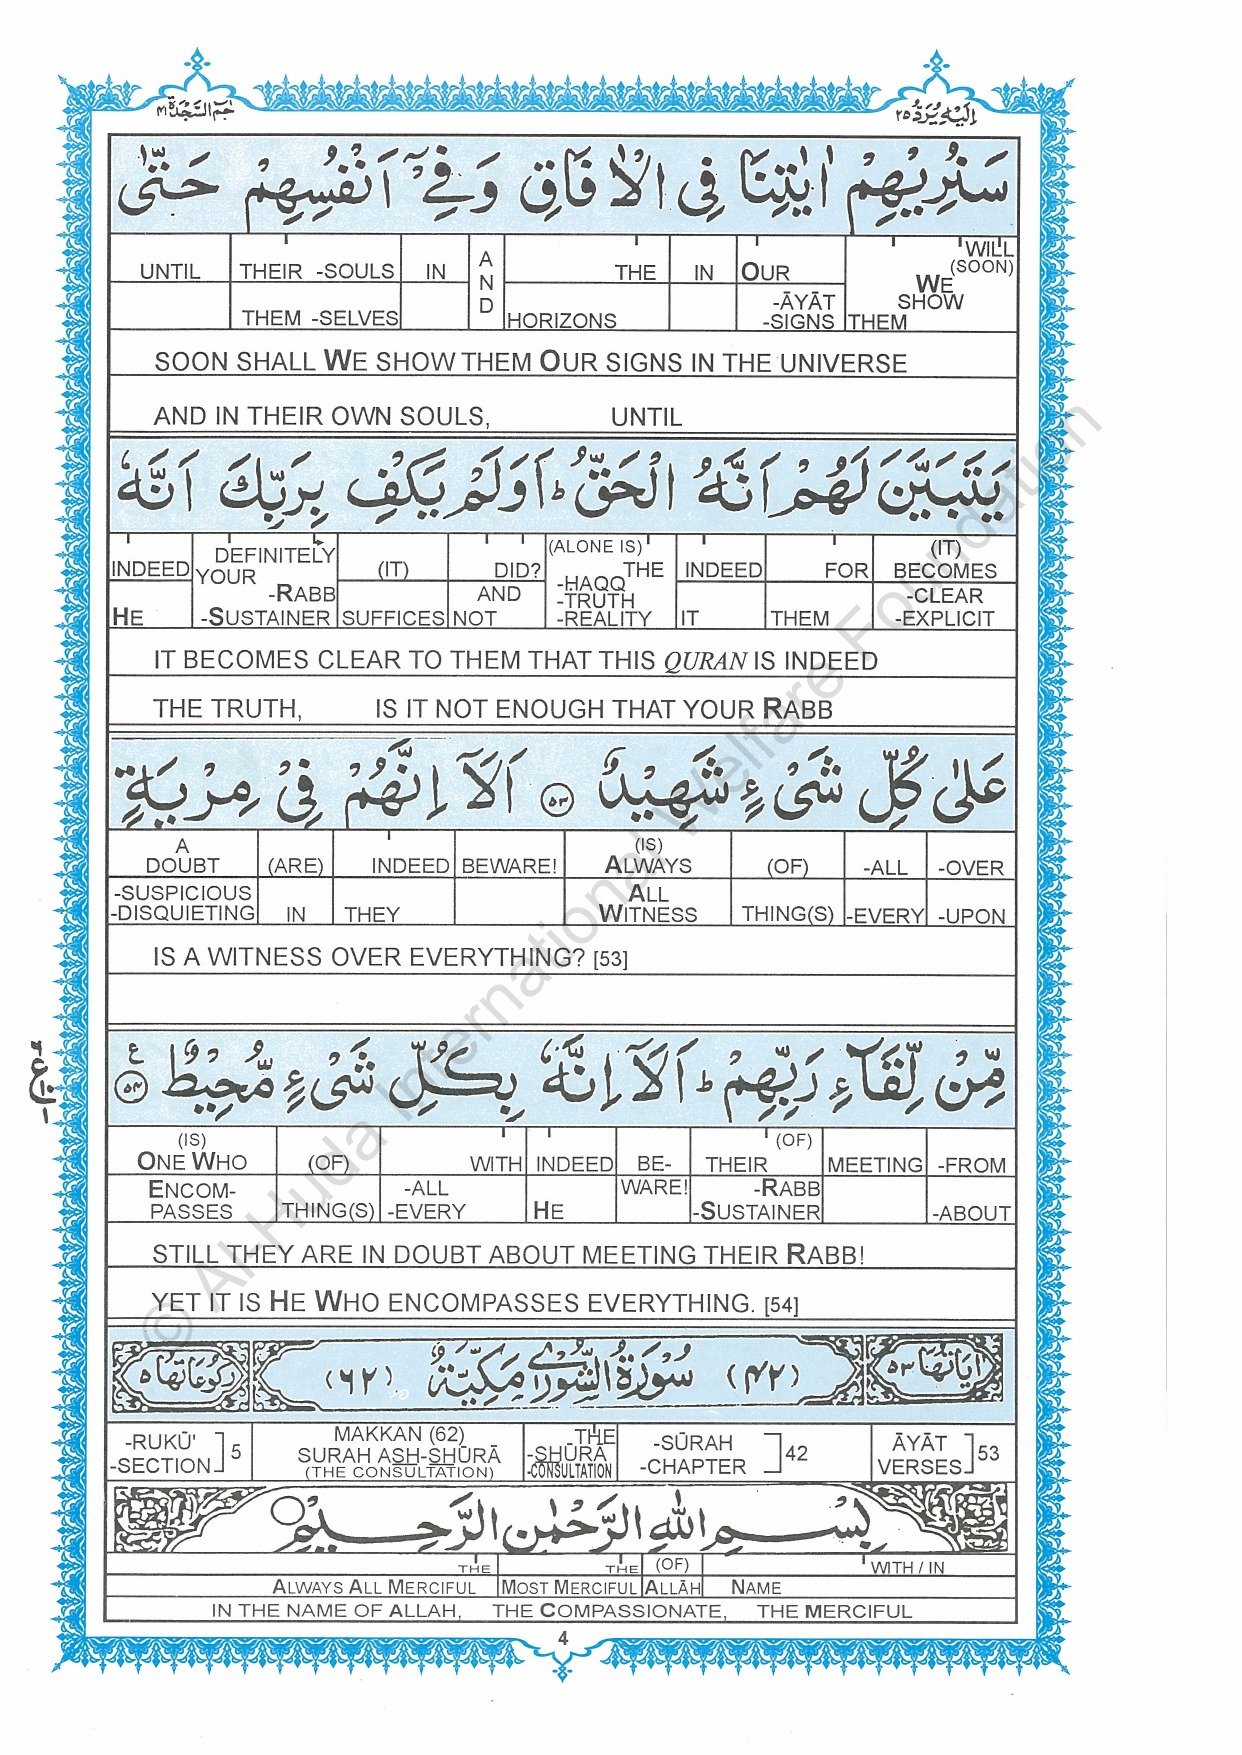 حٰم السَّجْدَة ٤١
اِلَيْهِ يُرَدُّ ٢٥
سَنُرِيْهِمْ اٰيٰتِنَا فِي الْاٰفَاقِ وَفِيْٓ اَنْفُسِهِمْ حَتّٰى
UNTIL THEIR -SOULS IN AND THE IN OUR WILL (SOON) WE SHOW
THEM -SELVES HORIZONS -ĀYĀT -SIGNS THEM
SOON SHALL WE SHOW THEM OUR SIGNS IN THE UNIVERSE
AND IN THEIR OWN SOULS, UNTIL
يَتَبَيَّنَ لَهُمْ اَنَّهُ الْحَقُّ ؕ اَوَلَمْ يَكْفِ بِرَبِّكَ اَنَّهٗ
INDEED DEFINITELY YOUR (IT) DID? (ALONE IS) THE INDEED FOR (IT) BECOMES
HE -RABB -SUSTAINER SUFFICES AND NOT -HAQQ -TRUTH -REALITY IT THEM -CLEAR -EXPLICIT
IT BECOMES CLEAR TO THEM THAT THIS QURAN IS INDEED
THE TRUTH, IS IT NOT ENOUGH THAT YOUR RABB
عَلٰى كُلِّ شَيْءٍ شَهِيْدٌ ٥٣ اَلَآ اِنَّهُمْ فِيْ مِرْيَةٍ
A DOUBT (ARE) INDEED BEWARE! (IS) ALWAYS (OF) -ALL -OVER
-SUSPICIOUS -DISQUIETING IN THEY ALL WITNESS THING(S) -EVERY -UPON
IS A WITNESS OVER EVERYTHING? [53]
مِّنْ لِّقَآءِ رَبِّهِمْ ؕ اَلَآ اِنَّهٗ بِكُلِّ شَيْءٍ مُّحِيْطٌ ٥٤ ع
(IS) ONE WHO (OF) WITH INDEED BE- THEIR (OF) MEETING -FROM
ENCOM-PASSES THING(S) -ALL -EVERY HE WARE! -RABB -SUSTAINER -ABOUT
STILL THEY ARE IN DOUBT ABOUT MEETING THEIR RABB!
YET IT IS HE WHO ENCOMPASSES EVERYTHING. [54]
اٰيَاتُهَا ٥٣ (٤٢) سُوْرَةُ الشُّوْرٰى مَكِّيَّةٌ (٦٢) رُكُوْعَاتُهَا ٥
-RUKŪ' -SECTION ] 5 MAKKAN (62) SURAH ASH-SHŪRĀ (THE CONSULTATION) THE -SHŪRĀ -CONSULTATION -SŪRAH -CHAPTER ] 42 ĀYĀT VERSES ] 53
بِسْمِ اللهِ الرَّحْمٰنِ الرَّحِيْمِ
THE THE (OF) WITH / IN
ALWAYS ALL MERCIFUL MOST MERCIFUL ALLĀH NAME
IN THE NAME OF ALLAH, THE COMPASSIONATE, THE MERCIFUL
4
© Al-Huda International Welfare Foundation